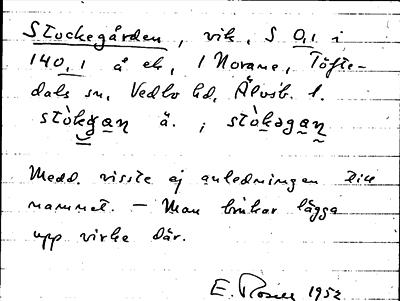 Stockegården, vik, S 0,1 i
140,1 å ek, 1 Norane, Töfte-
dals sn, Vedbo hd, Älvsb. l.
stòkgan ä. ; stòkəgan
Medd. visste ej anledningen till
namnet. — Man brukar lägga
upp virke där.
E. Rosell 1952